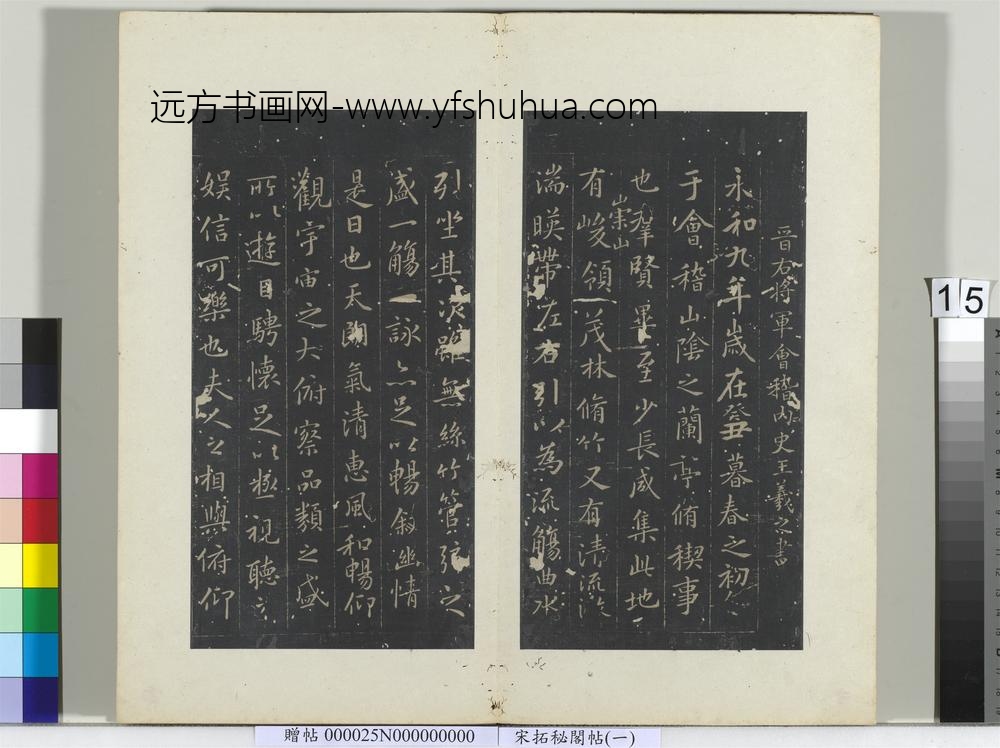 远方书画网-www.yfshuhua.com
晉右將軍會稽內史王羲之書
永和九年歲在癸丑暮春之初會
于會稽山陰之蘭亭脩稧事
也羣賢畢至少長咸集此地
有崇山峻領茂林脩竹又有清流激
湍暎帶左右引以為流觴曲水
列坐其次雖無絲竹管弦之
盛一觴一詠亦足以暢敘幽情
是日也天朗氣清惠風和暢仰
觀宇宙之大俯察品類之盛
所以遊目騁懷足以極視聽之
娛信可樂也夫人之相與俯仰
15
贈帖 000025N000000000
宋拓秘閣帖(一)